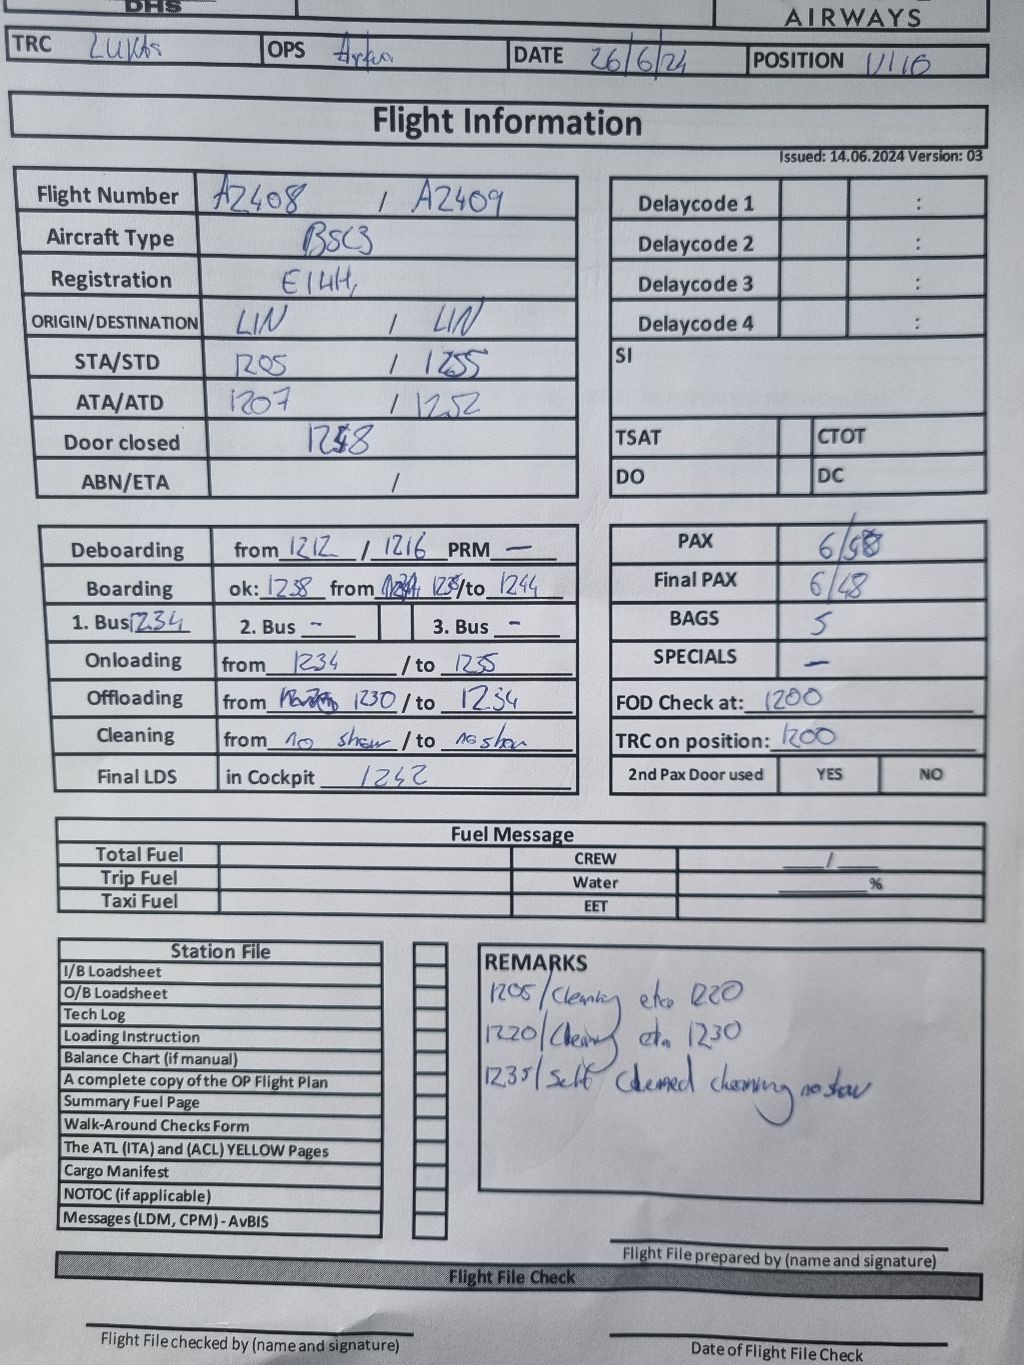 DHS
AIRWAYS
TRC Lukas OPS DATE 26/6/24 POSITION V116
Flight Information
Issued: 14.06.2024 Version: 03
Flight Number AZ408 / AZ409
Aircraft Type BSC3
Registration EI4H,
ORIGIN/DESTINATION LIN / LIN
STA/STD 1205 / 1255
ATA/ATD 1207 / 1252
Door closed 1248
ABN/ETA /
Delaycode 1 :
Delaycode 2 :
Delaycode 3 :
Delaycode 4 :
SI
TSAT CTOT
DO DC
Deboarding from 1212 / 1216 PRM —
Boarding ok: 1238 from 1238 /to 1244
1. Bus 1234 2. Bus – 3. Bus –
Onloading from 1234 / to 1235
Offloading from 1230 / to 1234
Cleaning from no show / to no show
Final LDS in Cockpit 1242
PAX 6/58
Final PAX 6/48
BAGS 5
SPECIALS —
FOD Check at: 1200
TRC on position: 1200
2nd Pax Door used YES NO
Fuel Message
Total Fuel CREW ___/___
Trip Fuel Water ______%
Taxi Fuel EET
Station File
I/B Loadsheet
O/B Loadsheet
Tech Log
Loading Instruction
Balance Chart (if manual)
A complete copy of the OP Flight Plan
Summary Fuel Page
Walk-Around Checks Form
The ATL (ITA) and (ACL) YELLOW Pages
Cargo Manifest
NOTOC (if applicable)
Messages (LDM, CPM) - AvBIS
REMARKS
1205/Cleaning eta 1220
1220/Cleaning eta 1230
1235/Self cleaned cleaning no show
Flight File prepared by (name and signature)
Flight File Check
Flight File checked by (name and signature)
Date of Flight File Check